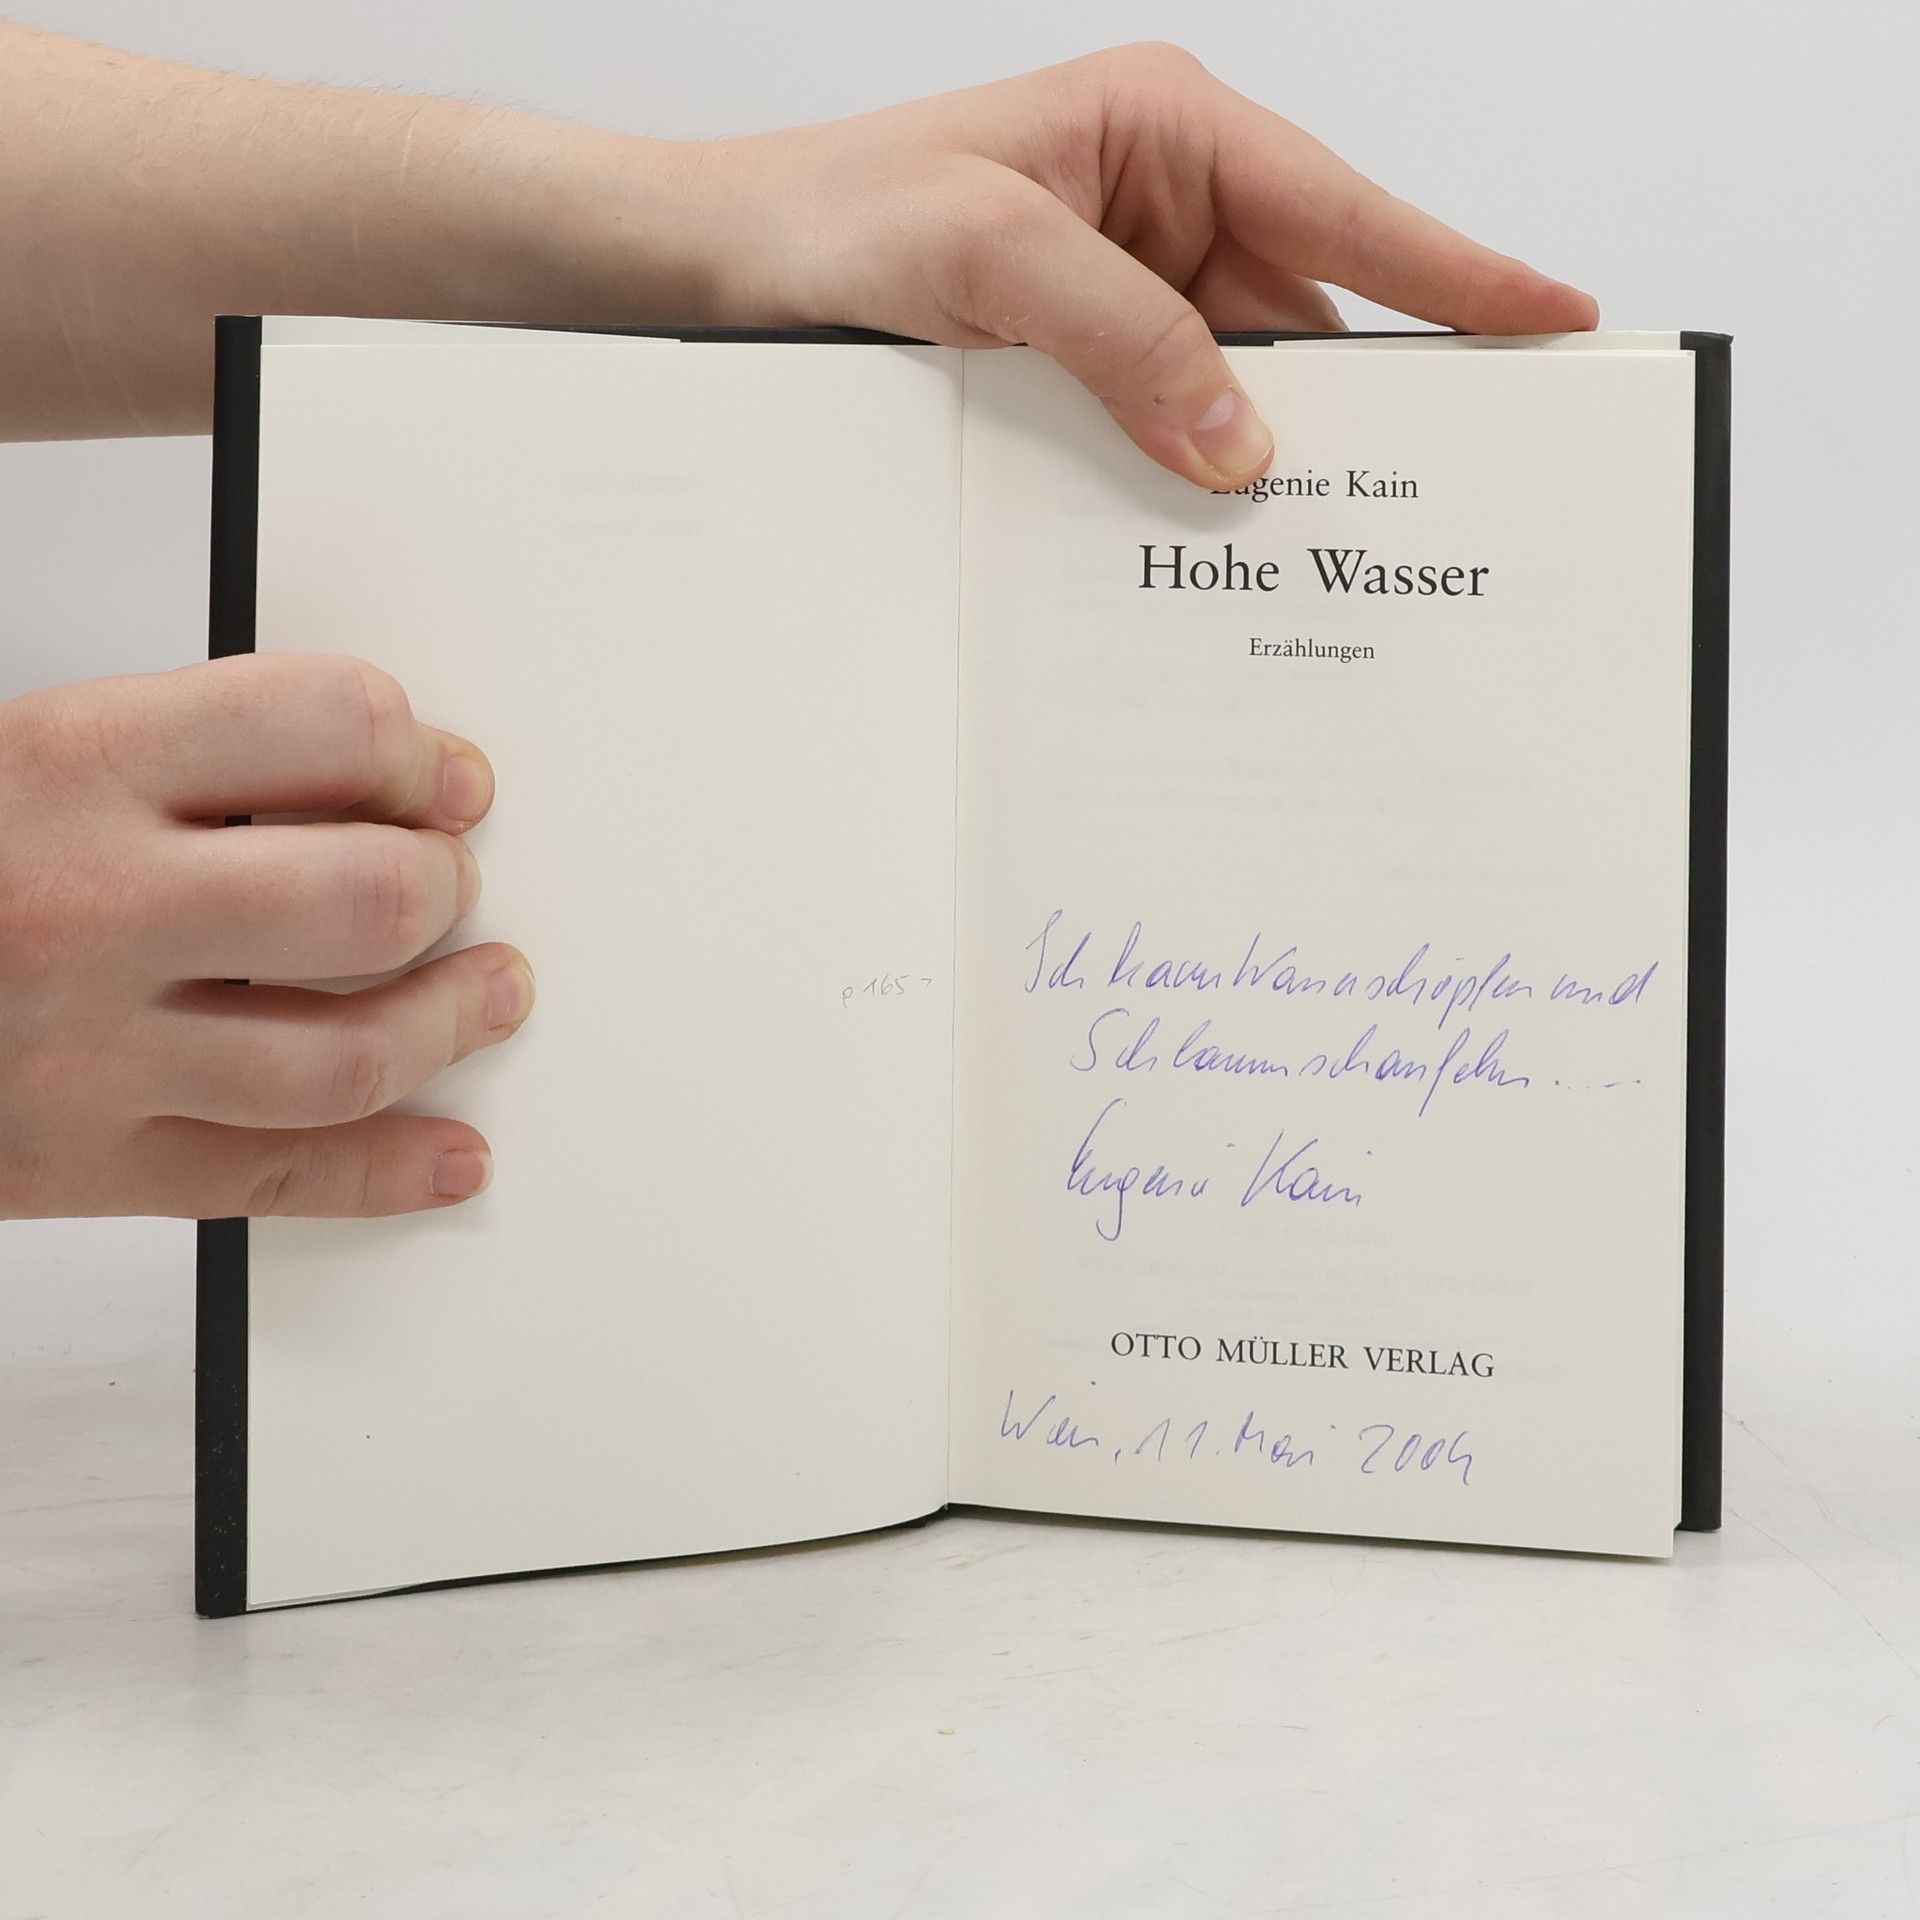 Eugenie Kain
Hohe Wasser
Erzählungen
p 165
Ich kann Wasserschöpfen und
Schlammschaufeln.....
Eugenie Kain
OTTO MÜLLER VERLAG
Wien, 11. Mai 2004